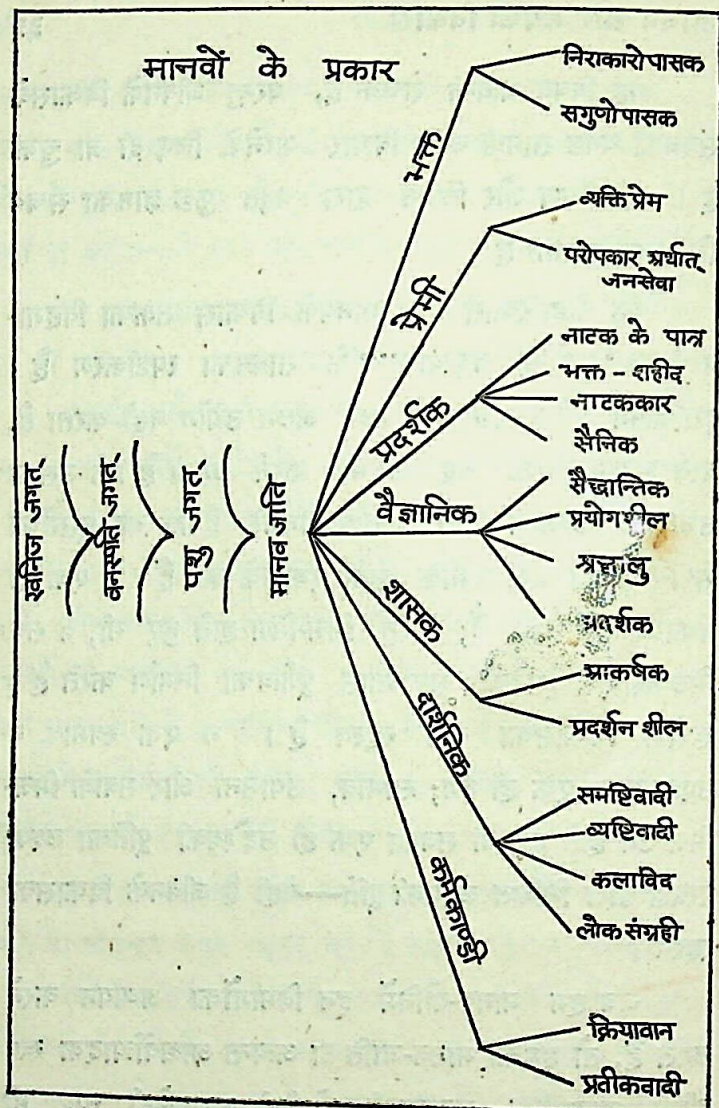 मानवों के प्रकार
खनिज जगत्
वनस्पति जगत्
पशु जगत्
मानव जाति
भक्त
निराकारोपासक
सगुणोपासक
प्रेमी
व्यक्ति प्रेम
परोपकार अर्थात्
जनसेवा
प्रदर्शक
नाटक के पात्र
भक्त - शहीद
नाटककार
सैनिक
वैज्ञानिक
सैद्धान्तिक
प्रयोगशील
श्रद्धालु
प्रदर्शक
शासक
आकर्षक
प्रदर्शन शील
दार्शनिक
समष्टिवादी
व्यष्टिवादी
कलाविद
लोक संग्रही
कर्मकाण्डी
क्रियावान
प्रतीकवादी